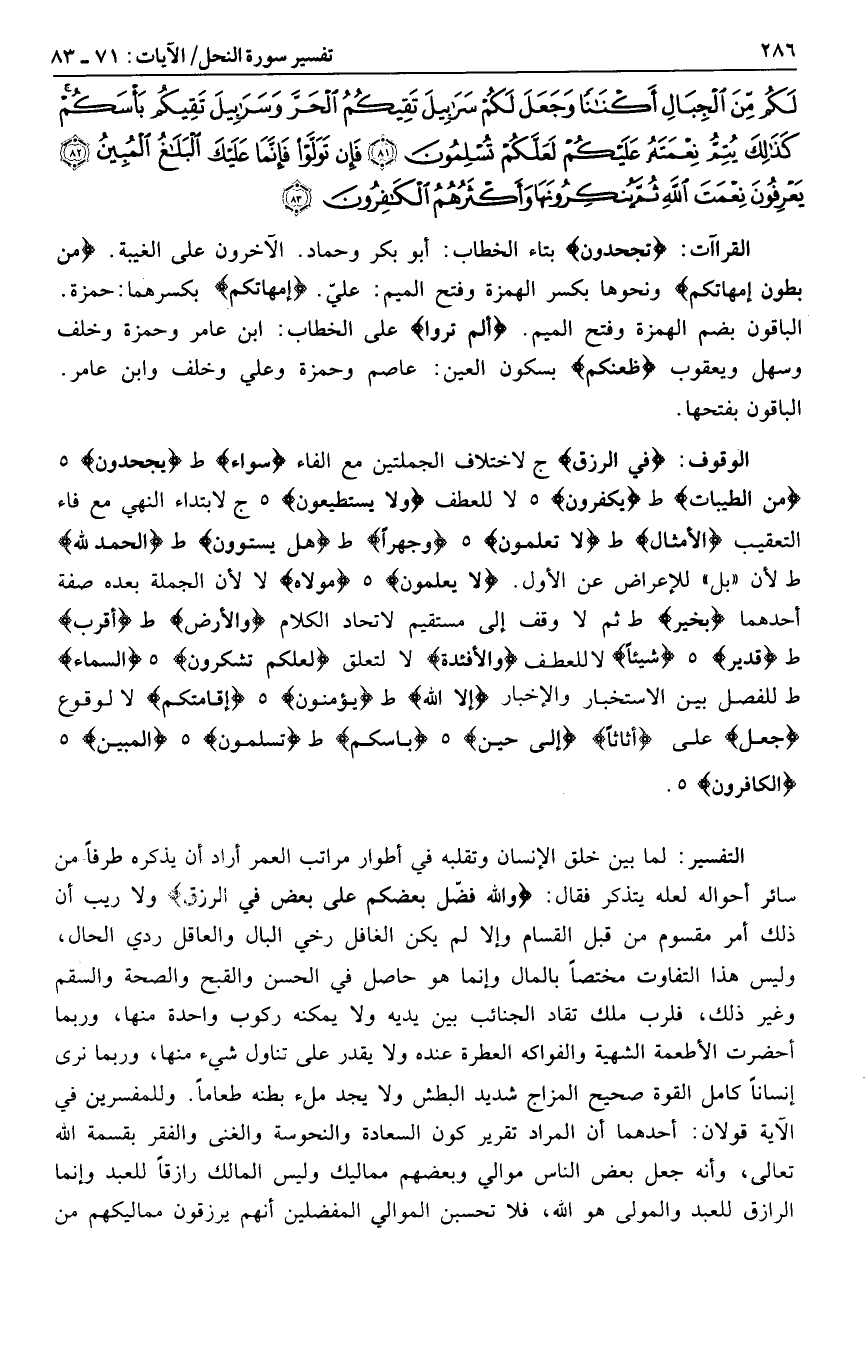 ٢٨٦
تفسير سورة النحل/ الآيات: ٧١ ـ ٨٣
لَكُم مِّنَ ٱلْجِبَالِ أَكْنَٰنًا وَجَعَلَ لَكُمْ سَرَٰبِيلَ تَقِيكُمُ ٱلْحَرَّ وَسَرَٰبِيلَ تَقِيكُم بَأْسَكُمْ ۚ
كَذَٰلِكَ يُتِمُّ نِعْمَتَهُۥ عَلَيْكُمْ لَعَلَّكُمْ تُسْلِمُونَ ﴿٨١﴾ فَإِن تَوَلَّوْا۟ فَإِنَّمَا عَلَيْكَ ٱلْبَلَٰغُ ٱلْمُبِينُ ﴿٨٢﴾
يَعْرِفُونَ نِعْمَتَ ٱللَّهِ ثُمَّ يُنكِرُونَهَا وَأَكْثَرُهُمُ ٱلْكَٰفِرُونَ ﴿٨٣﴾
القراآت: ﴿تجحدون﴾ بتاء الخطاب: أبو بكر وحماد. الآخرون على الغيبة. ﴿من
بطون إمهاتكم﴾ ونحوها بكسر الهمزة وفتح الميم: عليّ. ﴿إمهاتكم﴾ بكسرهما: حمزة.
الباقون بضم الهمزة وفتح الميم. ﴿ألم تروا﴾ على الخطاب: ابن عامر وحمزة وخلف
وسهل ويعقوب ﴿ظعنكم﴾ بسكون العين: عاصم وحمزة وعلي وخلف وابن عامر.
الباقون بفتحها.
الوقوف: ﴿في الرزق﴾ ج لاختلاف الجملتين مع الفاء ﴿سواء﴾ ط ﴿يجحدون﴾ ٥
﴿من الطيبات﴾ ط ﴿يكفرون﴾ ٥ لا للعطف ﴿ولا يستطيعون﴾ ٥ ج لابتداء النهي مع فاء
التعقيب ﴿الأمثال﴾ ط ﴿لا تعلمون﴾ ٥ ﴿وجهراً﴾ ط ﴿هل يستوون﴾ ط ﴿الحمد لله﴾
ط لأن «بل» للإعراض عن الأول. ﴿لا يعلمون﴾ ٥ ﴿مولاه﴾ لا لأن الجملة بعده صفة
أحدهما ﴿بخير﴾ ط ثم لا وقف إلى مستقيم لاتحاد الكلام ﴿والأرض﴾ ط ﴿أقرب﴾
ط ﴿قدير﴾ ٥ ﴿شيئاً﴾ لا للعطف ﴿والأفئدة﴾ لا لتعلق ﴿لعلكم تشكرون﴾ ٥ ﴿السماء﴾
ط للفصل بين الاستخبار والإخبار ﴿إلا الله﴾ ط ﴿يؤمنون﴾ ٥ ﴿إقامتكم﴾ لا لوقوع
﴿جعل﴾ على ﴿أثاثاً﴾ ﴿إلى حين﴾ ٥ ﴿بأسكم﴾ ط ﴿تسلمون﴾ ٥ ﴿المبين﴾ ٥
﴿الكافرون﴾ ٥ .
التفسير: لما بين خلق الإنسان وتقلبه في أطوار مراتب العمر أراد أن يذكره طرفاً من
سائر أحواله لعله يتذكر فقال: ﴿والله فضّل بعضكم على بعض في الرزق﴾ ولا ريب أن
ذلك أمر مقسوم من قبل القسام وإلا لم يكن الغافل رخي البال والعاقل ردي الحال،
وليس هذا التفاوت مختصاً بالمال وإنما هو حاصل في الحسن والقبح والصحة والسقم
وغير ذلك، فلرب ملك تقاد الجنائب بين يديه ولا يمكنه ركوب واحدة منها، وربما
أحضرت الأطعمة الشهية والفواكه العطرة عنده ولا يقدر على تناول شيء منها، وربما نرى
إنساناً كامل القوة صحيح المزاج شديد البطش ولا يجد ملء بطنه طعاماً. وللمفسرين في
الآية قولان: أحدهما أن المراد تقرير كون السعادة والنحوسة والغنى والفقر بقسمة الله
تعالى، وأنه جعل بعض الناس موالي وبعضهم مماليك وليس المالك رازقاً للعبد وإنما
الرازق للعبد والمولى هو الله، فلا تحسبن الموالي المفضلين أنهم يرزقون مماليكهم من